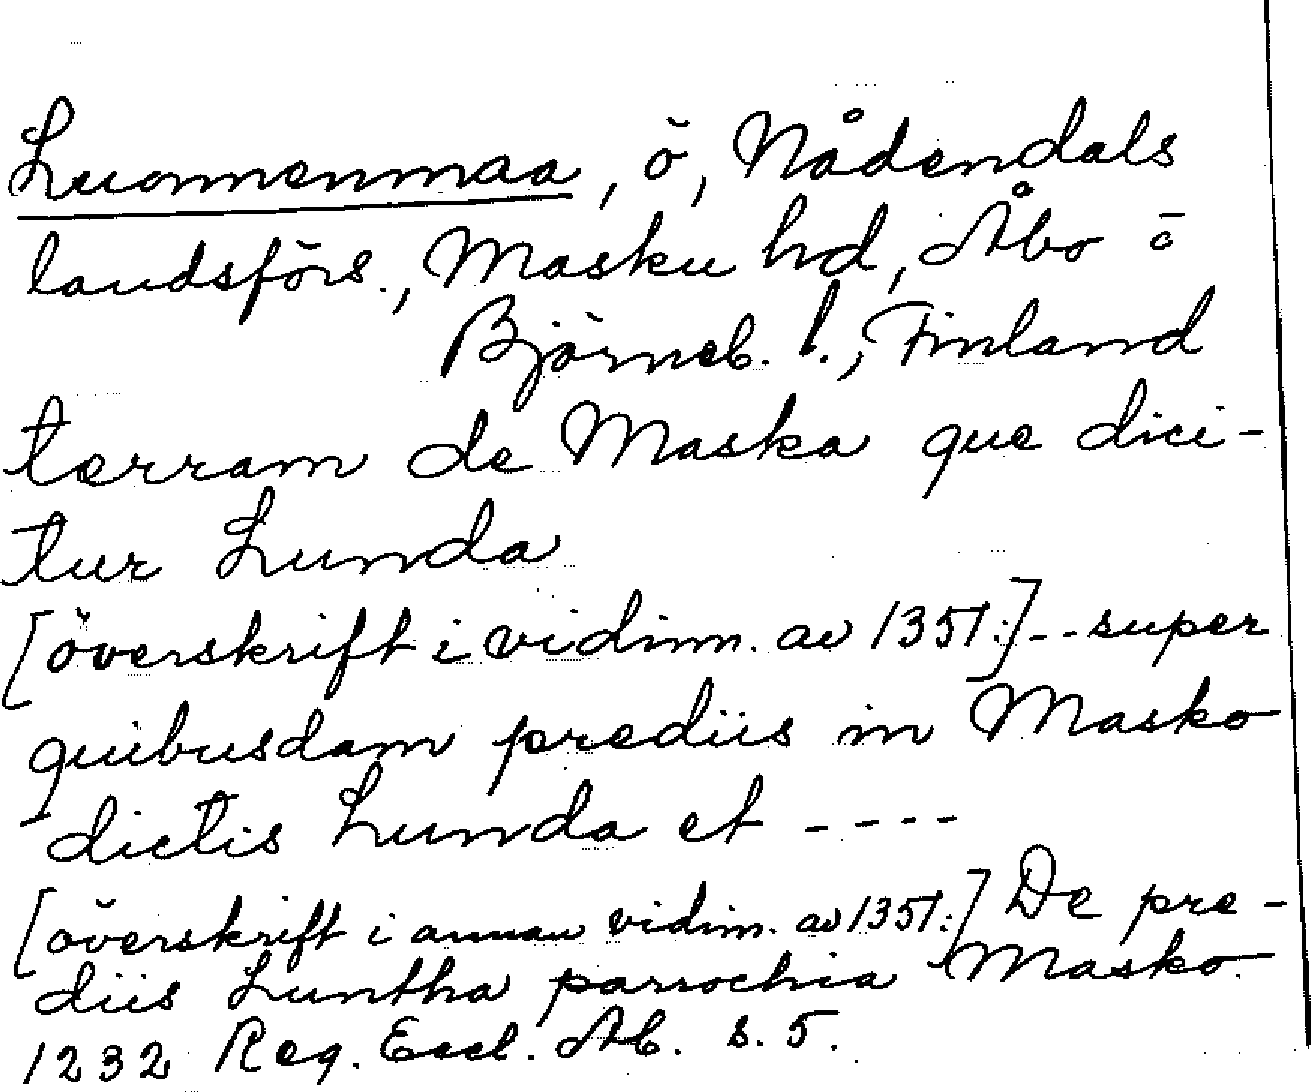 Luonnenmaa, ö, Nådendals
landsförs., Masku hd, Åbo o
Björneb. l., Finland
terram de Maska que dici-
tur Lunda
[överskrift i vidim. av 1351:] -- super
quibusdam prediis in Masko
dictis Lunda et ----
[överskrift i annan vidim. av 1351:] De pre-
diis Luntha parrochia Masko.
1232 Reg. Eccl. Ab. s. 5.